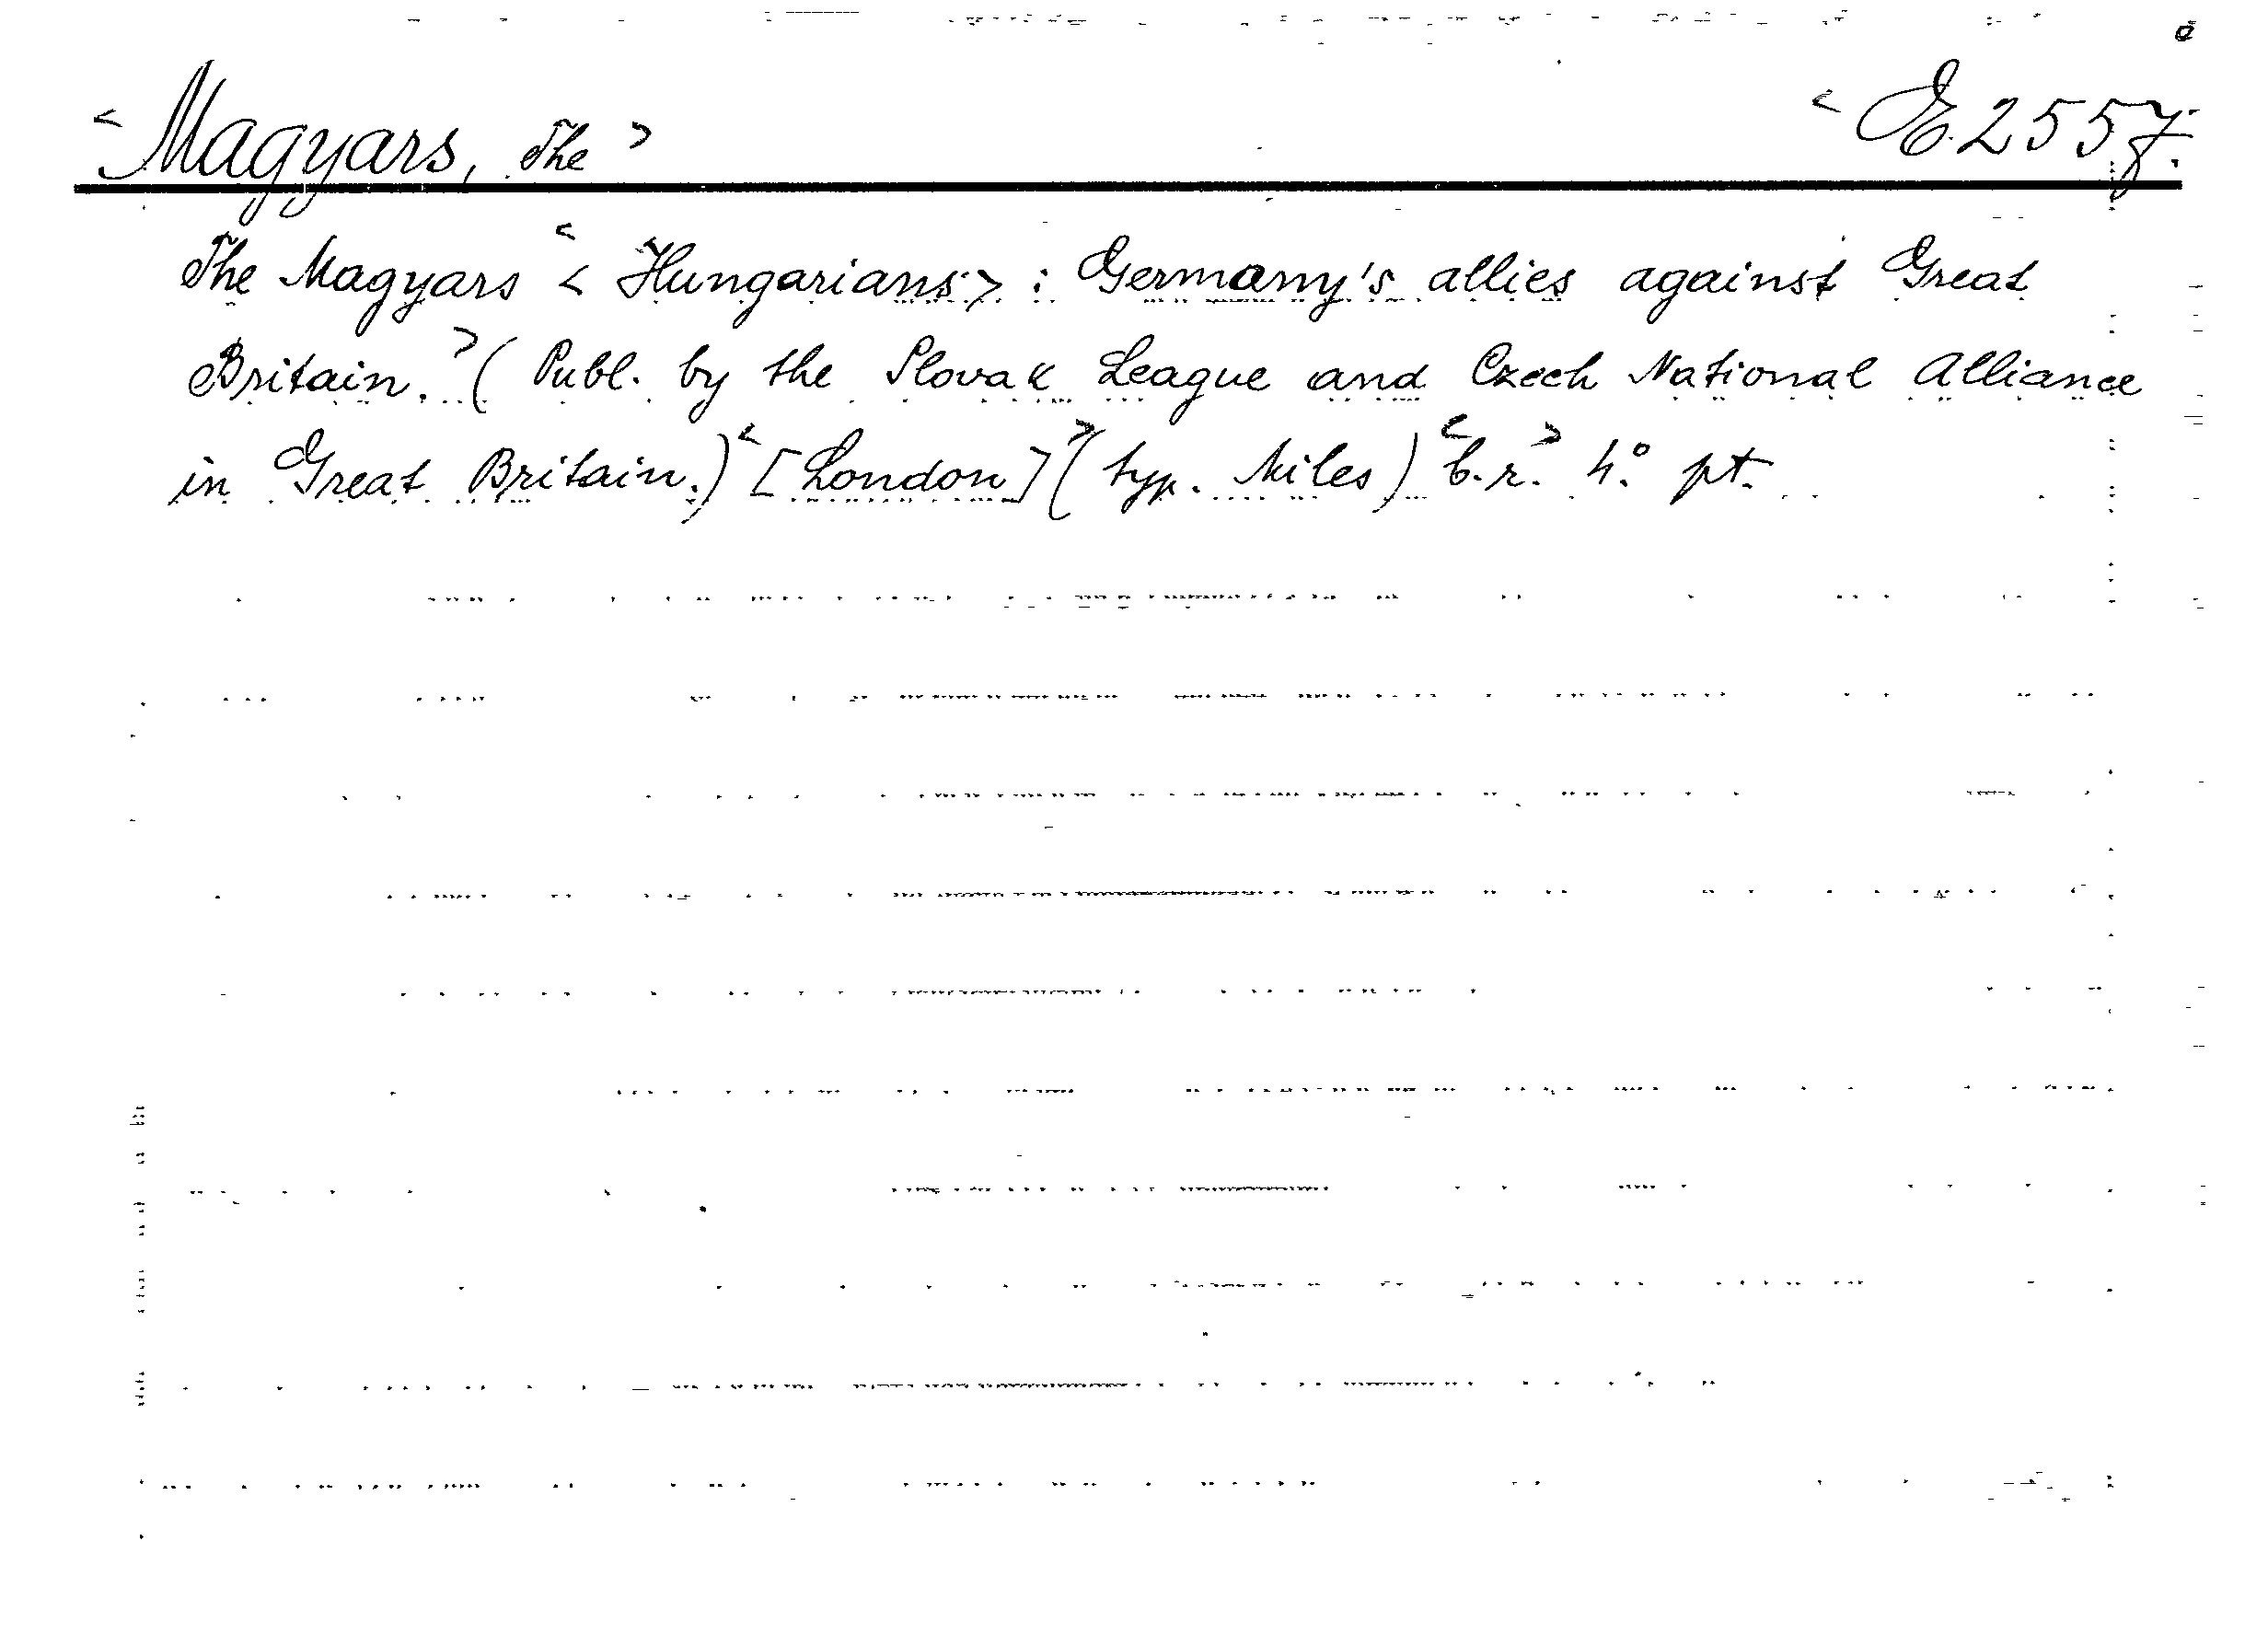 <Magyars, The> <E.2557.
The Magyars < Hungarians > : Germany's allies against Great
Britain.> (Publ. by the Slovak League and Czech National Alliance
in Great Britain.) <[London]> (typ. Miles) <b.r.> 4° pt.